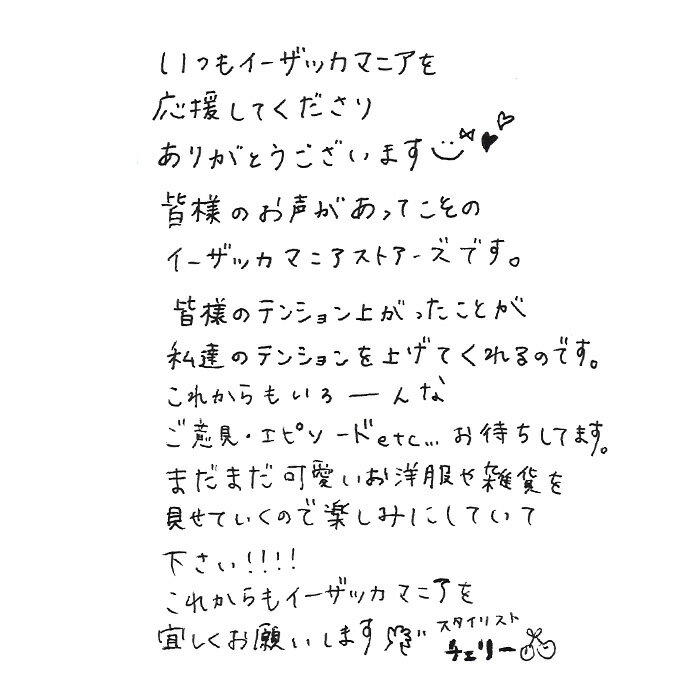 いつもイーザッカマニアを
応援してくださり
ありがとうございます
皆様のお声があってこその
イーザッカマニアストアーズです。
皆様のテンション上がったことが
私達のテンションを上げてくれるのです。
これからもいろーんな
ご意見・エピソードetc... お待ちしてます。
まだまだ可愛いお洋服や雑貨を
見せていくので楽しみにしていて
下さい!!!!
これからもイーザッカマニアを
宜しくお願いします
スタイリスト
チェリー